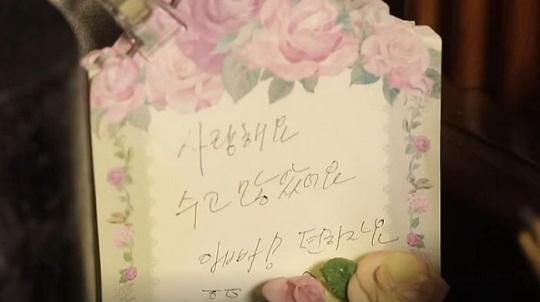 사랑해요
수고 많았어요
아빠! 편하지요